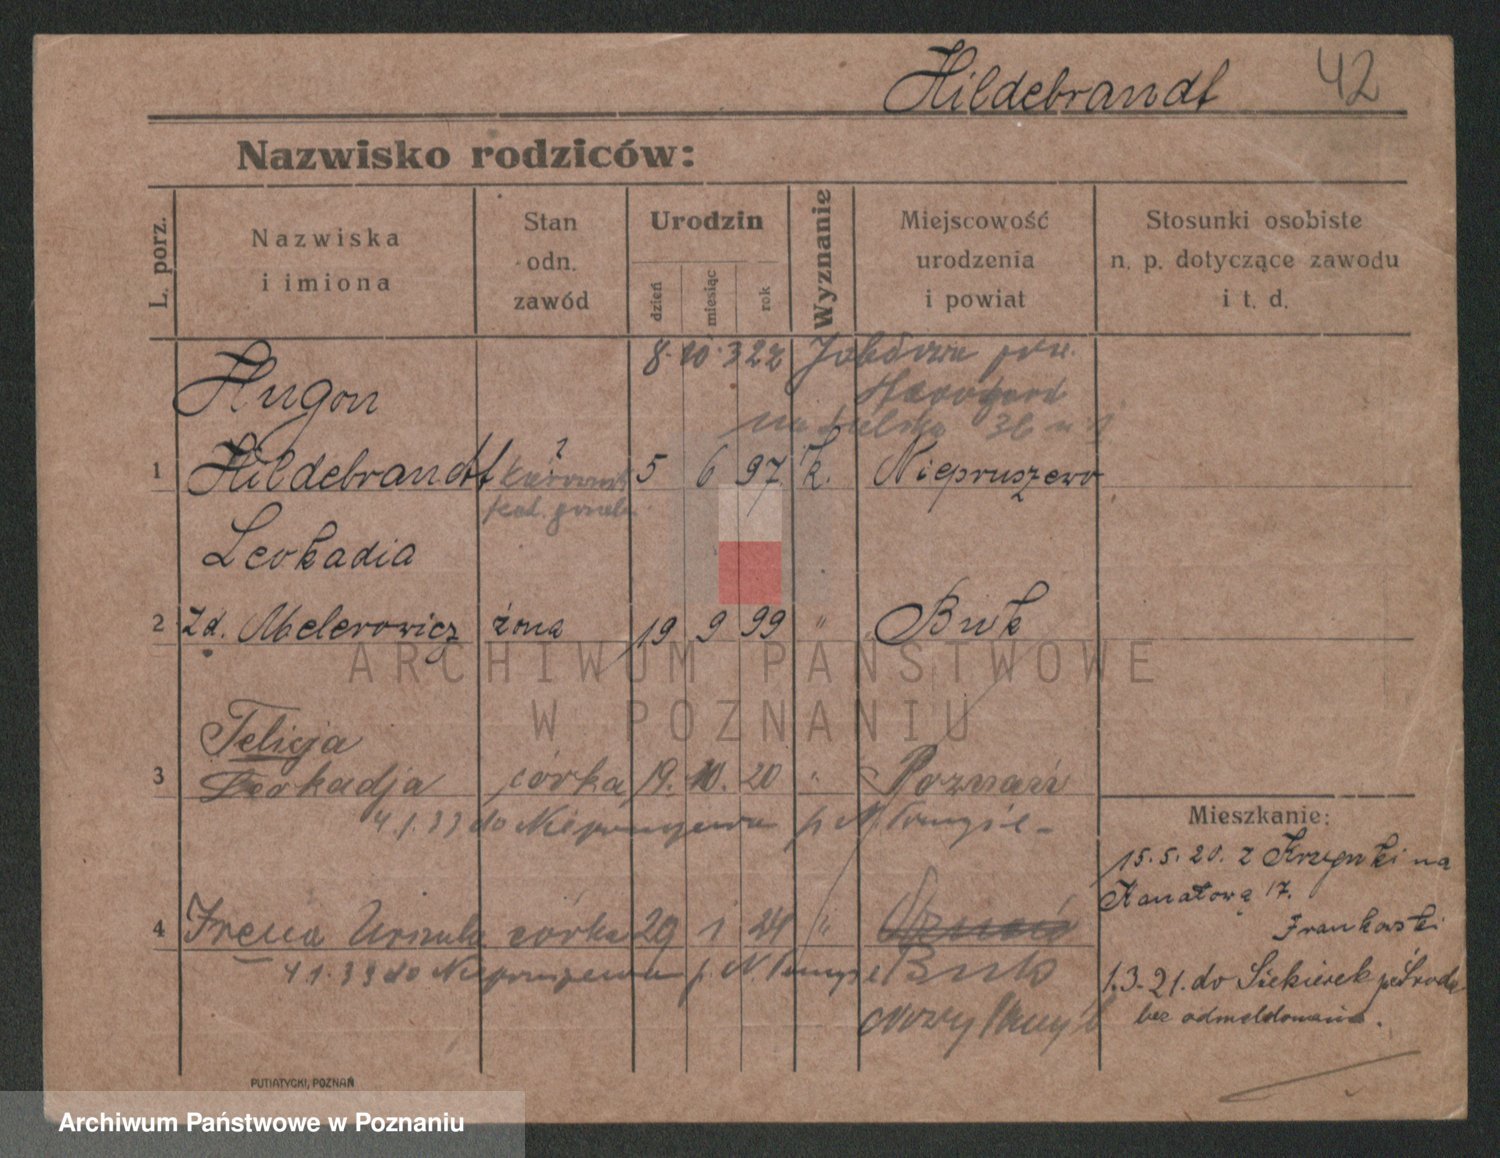 Hildebrandt 42
Nazwisko rodziców:
L. porz.
Nazwiska
i imiona
Stan
odn.
zawód
Urodzin
dzień
miesiąc
rok
Wyznanie
Miejscowość
urodzenia
i powiat
Stosunki osobiste
n. p. dotyczące zawodu
i t. d.
8. 10. 322
Hugon
1 Hildebrandt 5 6 97. k. Niepruszewo
Leokadia
2 zd. Melerowicz żona 19 9 99 " Buk
Felicja
3 Leokadja córka 19. 10. 20 " Poznań
4.1.33 do Niepruszewa p. N. Tomyśl
4 Irena Urszula córka 29 1 24 "
4.1.33 do Niepruszewa p. N. Tomyśl Buk
Nowy Tomyśl
Mieszkanie:
15.5.20. z na
Kanałową 17.
Frankowski
1.3.21. do Siekierek Środa
bez odmeldowania.
PUTIATYCKI, POZNAŃ
ARCHIWUM PAŃSTWOWE
W POZNANIU
Archiwum Państwowe w Poznaniu